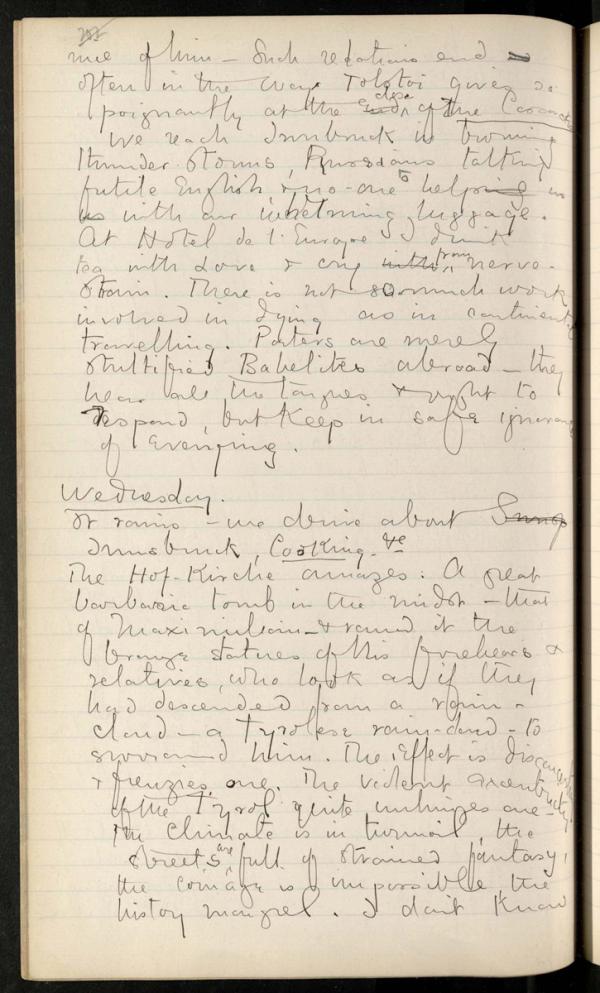 me of him – Such relations end so
often in the way Tolstoi gives so
poignantly at the end close of the Cossacks
We reach Innsbruck in booming
thunder storms, Russians talking
futile English & no-one to helping in
us with our whelming luggage.
At Hotel de l'Europe I drink
tea with Love & cry with from nerve-
strain. There is not so much work
involved in dying as in continental
travelling. Porters are merely
stultified Babelites abroad – they
hear all the tongues & ought to
respond, but keep in safe ignorance
of everything.
Wednesday.
It rains – we drive about
Innsbruck, Cooking &c
The Hof-Kirche amazes: A great
barbaric tomb in the midst – that
of Maximilian – & round it the
bronze statues of his forebears &
relatives, who look as if they
had descended from a rain-
cloud – a Tyrolese rain-cloud – to
surround him. The Effect is
& frenzies one. The violent excentricity
of the Tyrol quite unhinges one –
The climate is in turmoil, the
streets are full of strained fantasy,
the coinage is impossible, the
history mongrel. I don't know